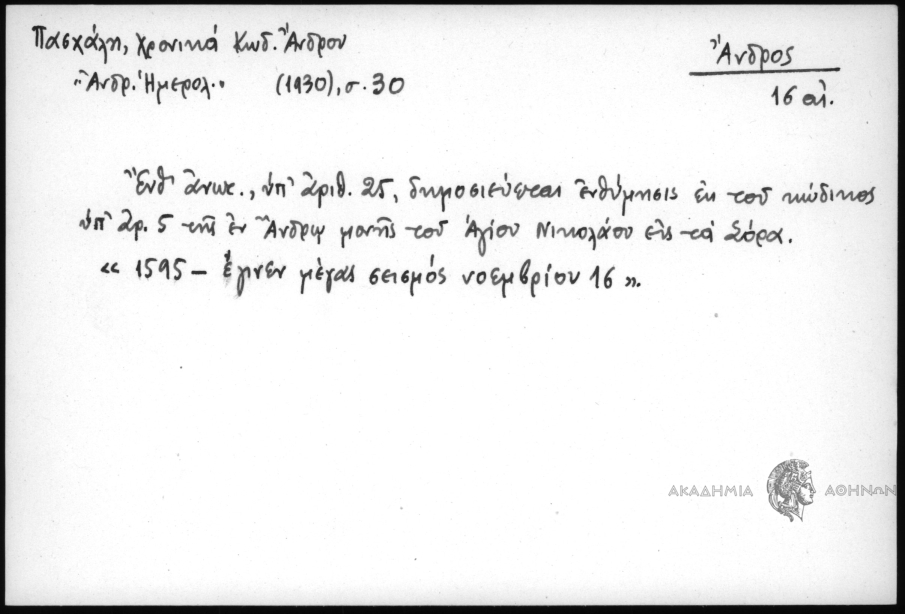 Πασχάλη, Χρονικά Κωδ. Ἄνδρου
"Ἀνδρ. Ἡμερολ." (1930), σ. 30
Ἄνδρος
16 αἰ.
Ἔνθ' ἀνωτ., ὑπ' ἀριθ. 25, δημοσιεύεται ἐνθύμησις ἐκ τοῦ κώδικος
ὑπ' ἀρ. 5 τῆς ἐν Ἄνδρῳ μονῆς τοῦ Ἁγίου Νικολάου εἰς τὰ Σόρα.
« 1595 – ἔγινεν μέγας σεισμός νοεμβρίου 16 ».
ΑΚΑΔΗΜΙΑ ΑΘΗΝΩΝ